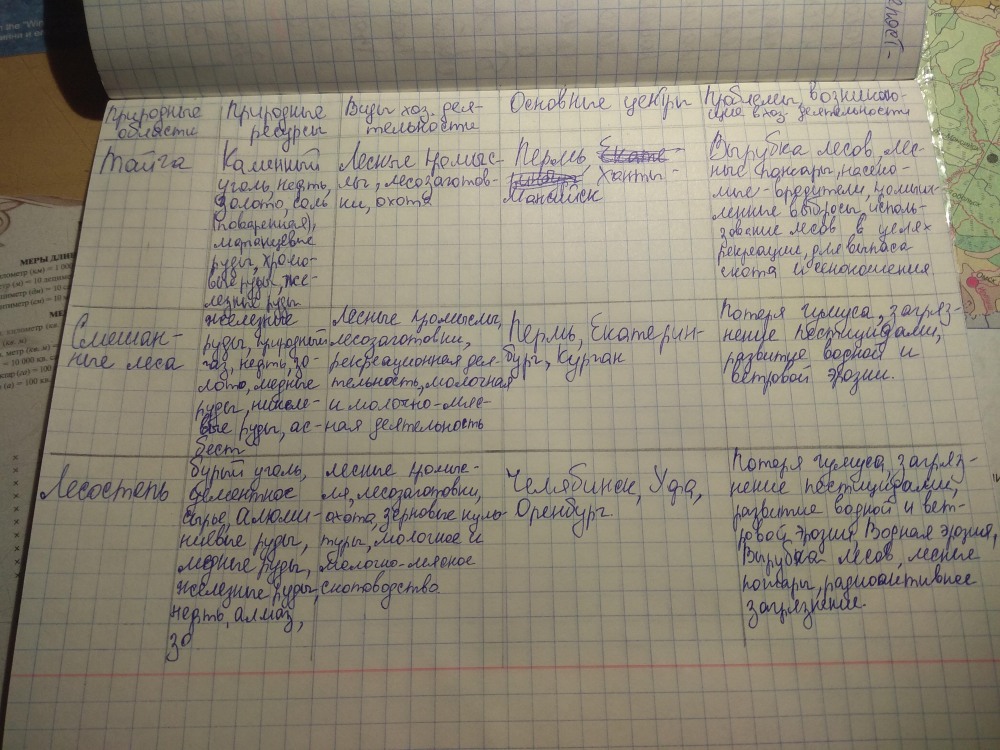 Природные области
Природные ресурсы
Виды хоз. деятельности
Основные центры
Проблемы, возникающие в хоз. деятельности
Тайга
Каменный
уголь, нефть,
золото, соль
(поваренная),
марганцевые
руды, хромо-
вые руды, же-
лезные руды
Лесные промыс-
лы, лесозаготов-
ки, охота
Пермь,
Ханты-
Мансийск
Вырубка лесов, лес-
ные пожары, насеко-
мые-вредители, промыш-
ленные выбросы, исполь-
зование лесов в целях
рекреации, для выпаса
скота и сенокошения
Смешан-
ные леса
железные
руды, природный
газ, нефть, зо-
лото, медные
руды, никеле-
вые руды, ас-
бест
лесные промыслы,
лесозаготовки,
рекреационная дея-
тельность, молочная
и молочно-мяс-
ная деятельность
Пермь, Екатерин-
бург, Курган
Потеря гумуса, загряз-
нение пестицидами,
развитие водной и
ветровой эрозии.
Лесостепь
бурый уголь,
цементное
сырье, алюми-
ниевые руды,
медные руды,
железные руды,
нефть, алмаз,
зо
лесные промыс-
ля, лесозаготовки,
охота, зерновые куль-
туры, молочное и
молочно-мясное
скотоводство.
Челябинск, Уфа,
Оренбург
Потеря гумуса, загряз-
нение пестицидами,
развитие водной и вет-
ровой эрозия, Водная эрозия,
Вырубка лесов, лесные
пожары, радиоактивное
загрязнение.
МЕРЫ ДЛИН